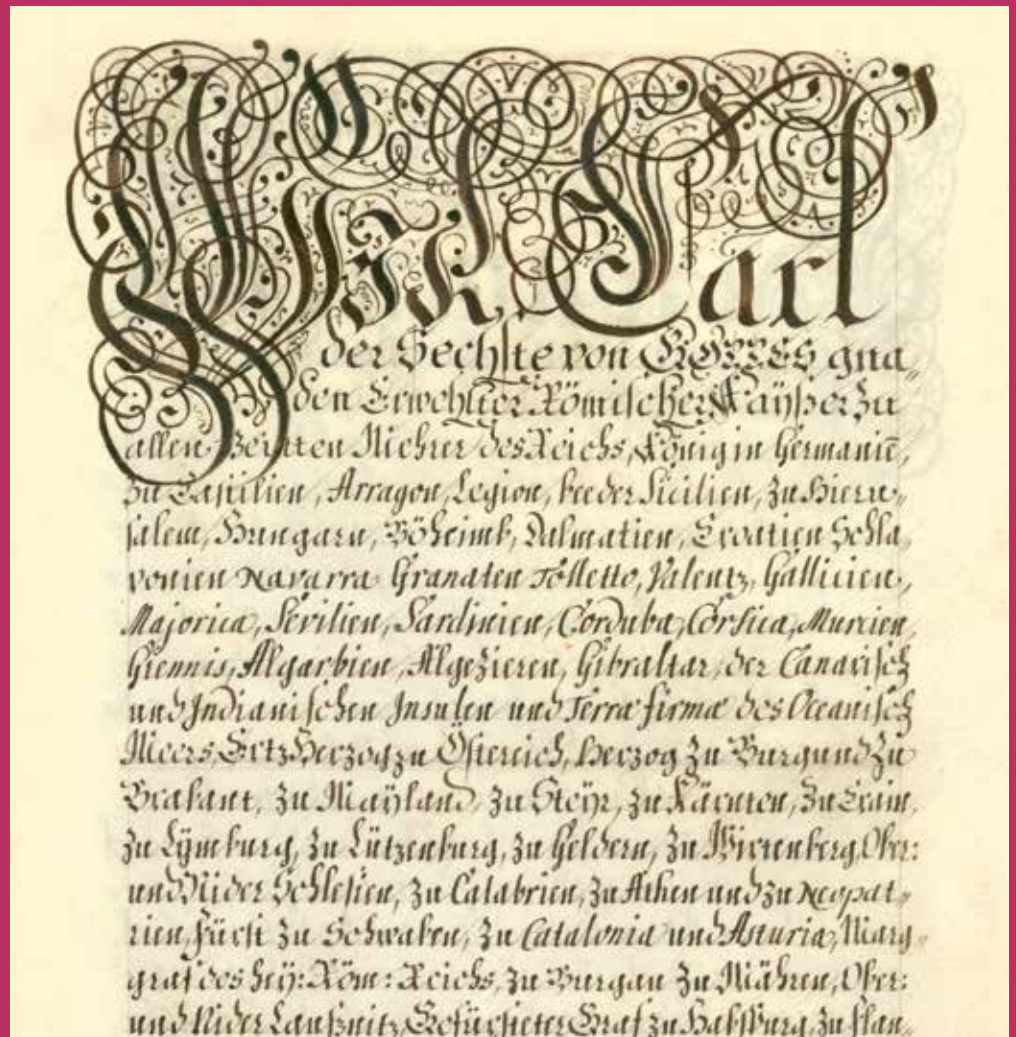 Wir Carl
der Sechste von GOTTES gna„
den Erwehlter Römischer Kayßer Zu
allen Zeitten Mehrer des Reichs, König in Germaniē,
Zu Castilien, Arragon, Legion, beeder Sicilien, Zu Hieru„
salem, Hungarn, Böheimb, Dalmatien, Croatien Schla„
vonien Navarra Granaten Tolletto, Valentz, Gallicien,
Majorica, Sevilien, Sardinien, Corduba, Corsica, Murcien,
Giennis, Algarbien, Algezieren, Gibraltar, der Canarisch
und Indianischen Insulen und Terra firma des Oceanisch
Meers, ErtzHerzog zu Österreich, Herzog Zu Burgund Zu
Brabant, Zu Mayland, Zu Steyr, Zu Kärnten, Zu Crain,
Zu Lymburg, Zu Lützenburg, Zu Geldern, Zu Wirtenberg, Ober:
und Nider Schlesien, Zu Calabrien, Zu Athen und Zu Neopat„
rien, Fürst Zu Schwaben, Zu Catalonia und Asturia, Marg„
graf des heÿ: Röm: Reichs, Zu Burgau Zu Mähren, Ober:
und Nider Laußnitz, Gefürsteter Graf Zu Habsburg, Zu Flan„